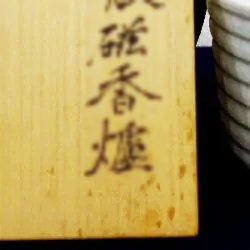 磁香爐